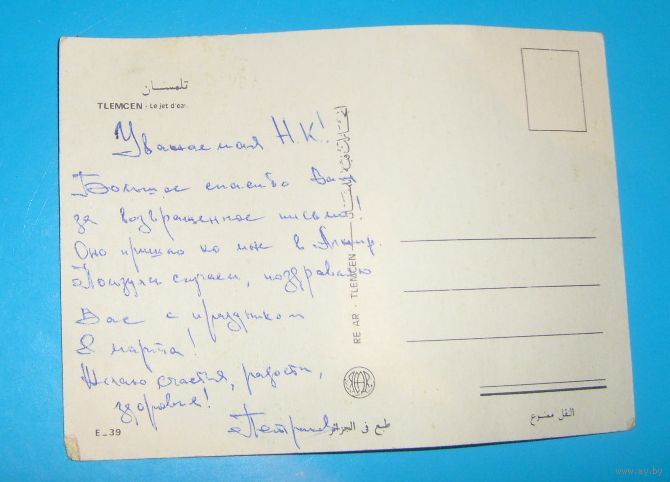 تلمسان
TLEMCEN - Le jet d'eau
Уважаемая Н.К!
Большое спасибо Вам
за возвращенное письмо!
Оно пришло ко мне в Алжир.
Пользуясь случаем, поздравляю
Вас с праздником
8 марта!
Желаю счастья, радости,
здоровья!
E_39
RE AR · TLEMCEN
طبع في الجزائر
النقل ممنوع
www.ay.by